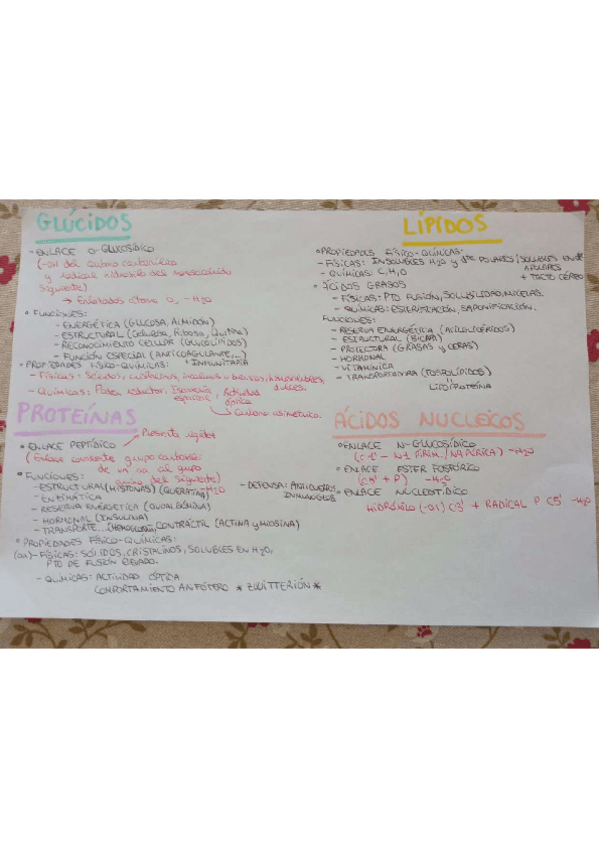 GLÚCIDOS
- ENLACE O-GLUCOSÍDICO
(-OH del carbono carbonílico
y radical hidroxilo del monosacárido
siguiente)
→ Enlazados átomo O, -H₂O
° FUNCIONES:
- ENERGÉTICA (GLUCOSA, ALMIDÓN)
- ESTRUCTURAL (Celulosa, Ribosa, Quitina)
- RECONOCIMIENTO CELULAR (GLUCOLÍPIDOS)
- FUNCIÓN ESPECIAL (ANTICOAGULANTE,...)
+ INMUNITARIA
° PROPIEDADES FÍSICO-QUÍMICAS:
- Físicas: Sólidos, cristalinos, incoloros o blancos, hidrosolubles, dulces.
- Químicas: Poder reductor, Isomería espacial, Actividad óptica
→ Carbono asimétrico.
PROTEÍNAS
Presenta rigidez
° ENLACE PEPTÍDICO
(Enlace covalente grupo carboxilo
de un aa al grupo
amino del siguiente)
-H₂O
° FUNCIONES:
- ESTRUCTURAL (HISTONAS) (QUERATINA)
- ENZIMÁTICA
- RESERVA ENERGÉTICA (OVOALBÚMINA)
- HORMONAL (INSULINA)
- TRANSPORTE... (HEMOGLOBINA), CONTRÁCTIL (ACTINA y MIOSINA)
- DEFENSA: ANTICUERPOS
INMUNOGLOB
° PROPIEDADES FÍSICO-QUÍMICAS:
(aa) - FÍSICAS: SÓLIDOS, CRISTALINOS, SOLUBLES EN H₂O,
PTO DE FUSIÓN ELEVADO.
- QUÍMICAS: ACTIVIDAD ÓPTICA
COMPORTAMIENTO ANFÓTERO * ZWITTERIÓN *
LÍPIDOS
° PROPIEDADES FÍSICO-QUÍMICAS:
- FÍSICAS: INSOLUBLES H₂O y dtes POLARES / SOLUBLES EN dte APOLARES
+ TACTO CÉREO
- QUÍMICAS: C, H, O
° ÁCIDOS GRASOS
- FÍSICAS: PTO FUSIÓN, SOLUBILIDAD, MICELAS.
- QUÍMICAS: ESTERIFICACIÓN, SAPONIFICACIÓN.
FUNCIONES:
- RESERVA ENERGÉTICA (ACILGLICÉRIDOS)
- ESTRUCTURAL (BICAPA)
- PROTECTORA (GRASAS y CERAS)
- HORMONAL
- VITAMÍNICA
- TRANSPORTADORA (FOSFOLÍPIDOS)
LIPOPROTEÍNA
ÁCIDOS NUCLEICOS
° ENLACE N-GLUCOSÍDICO
(C1' - N1 PIRIM. / N9 PÚRICA) -H₂O
° ENLACE ÉSTER FOSFÓRICO
(C5' + P) -H₂O
° ENLACE NUCLEOTÍDICO
HIDROXILO (-OH) C3' + RADICAL P C5' -H₂O